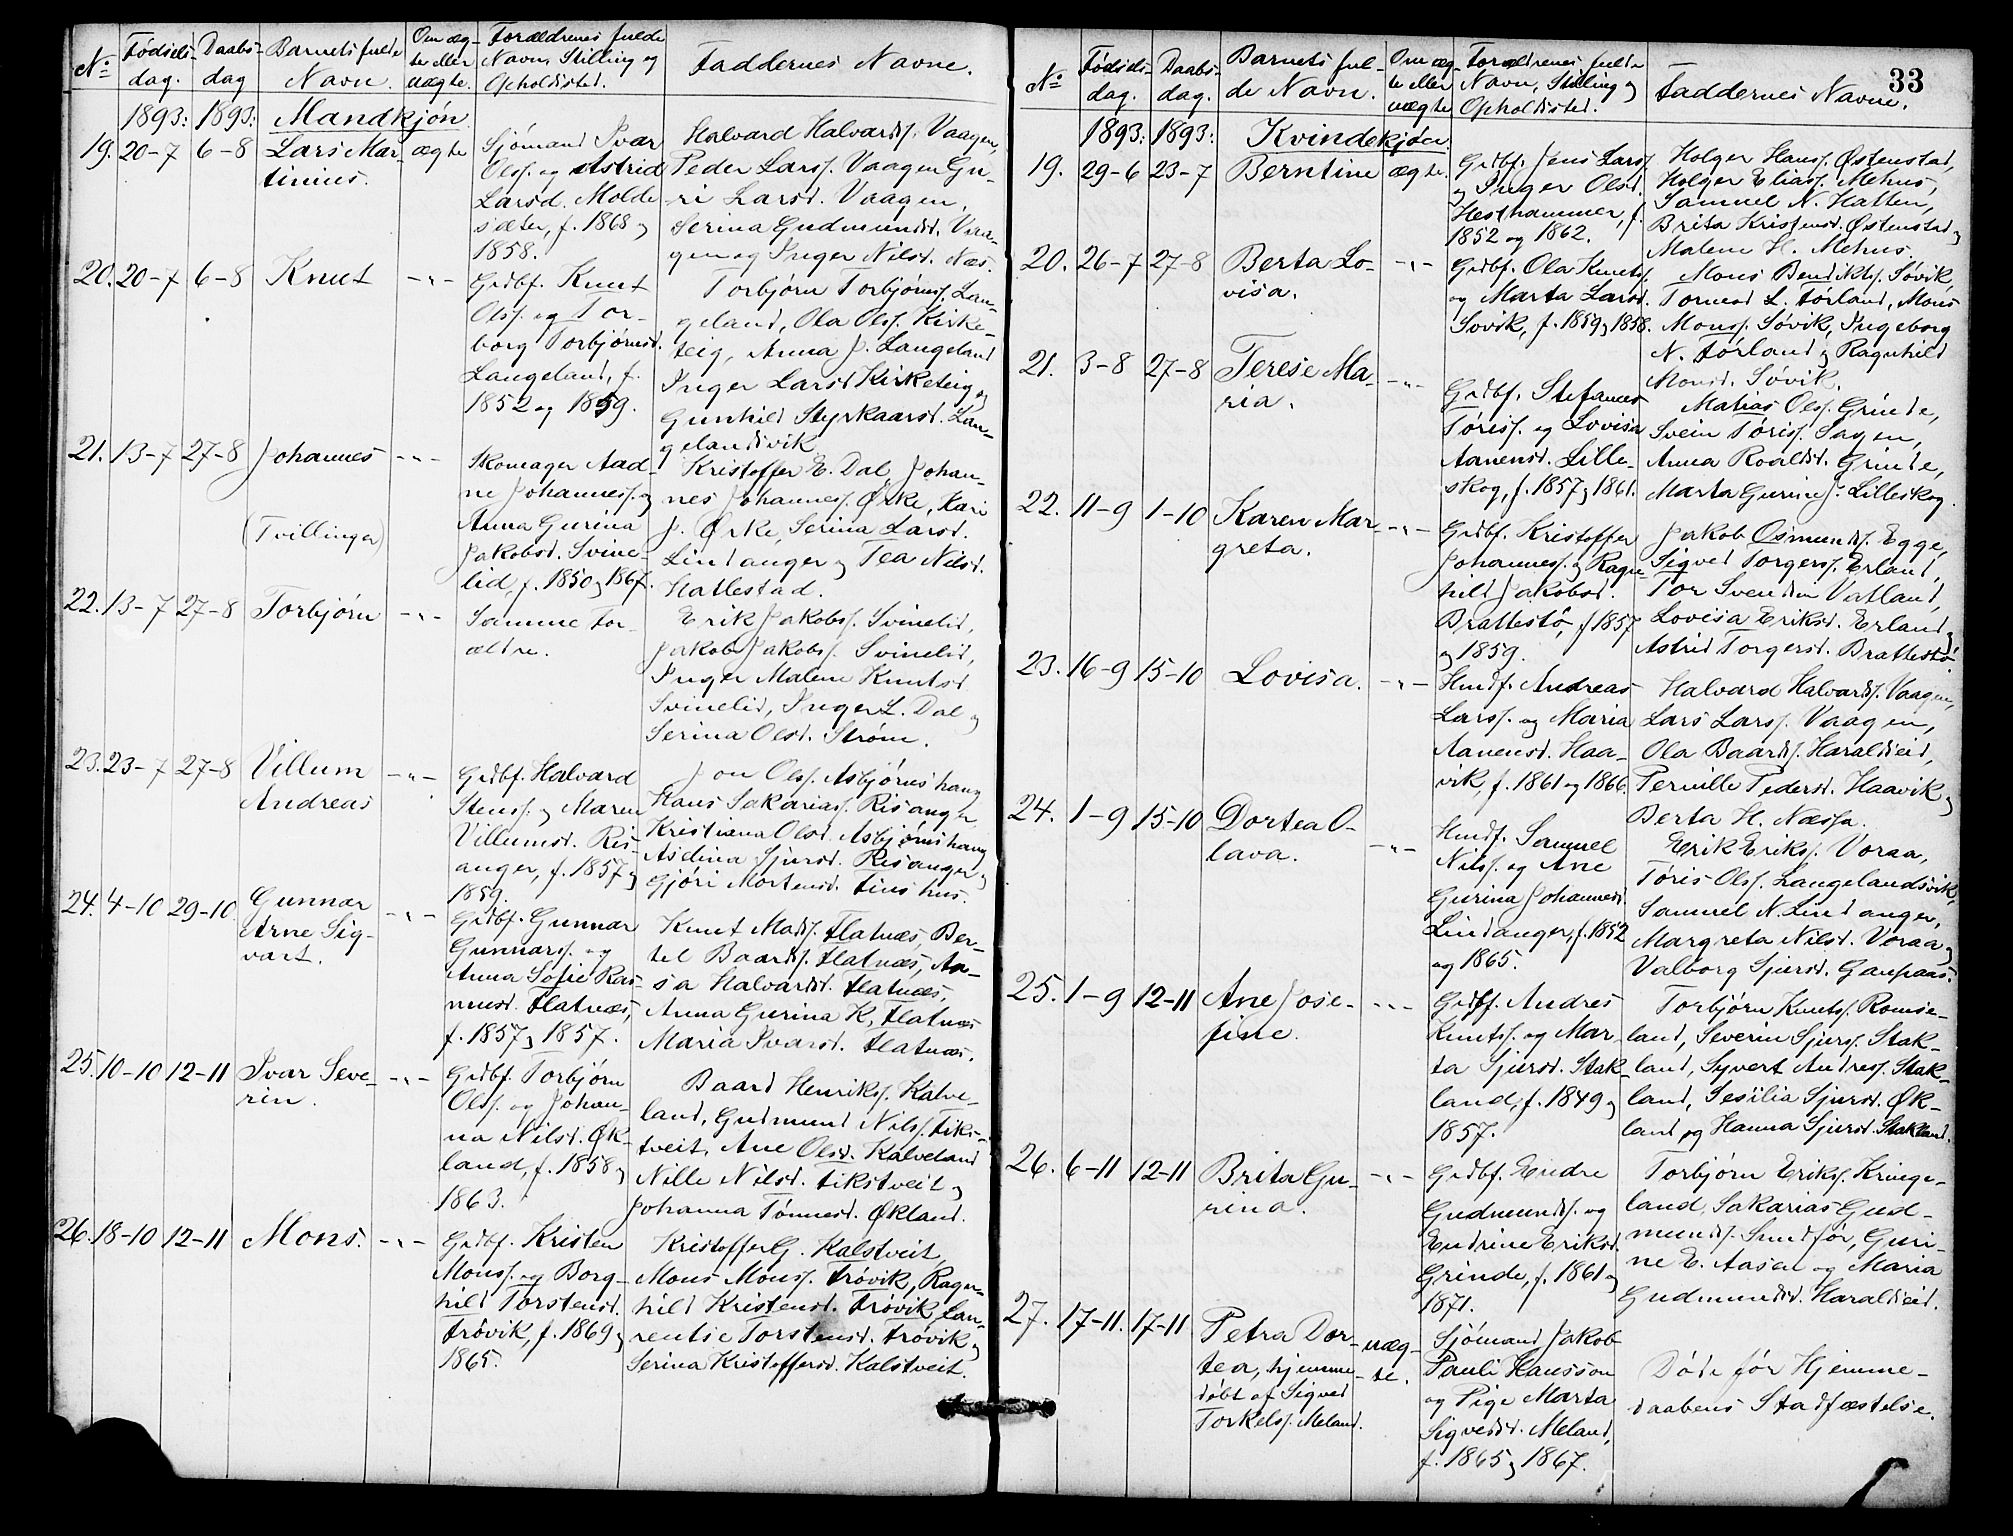 33
No Fødselsdag. Daabsdag Barnets fulde Navn. Om ægte eller uægte. Forældrenes fulde Navn, Stilling og Opholdssted. Faddernes Navne.
1893: 1893: Mandkjøn
19. 20-7 6-8 Lars Mar- ægte
tinius.
Sjómand Ivar
Olsf. og Astrid
Larsd. Molde-
sæter, f. 1868 og
1858.
Halvard Halvardsf. Vaagen,
Peder Larsf. Vaagen Gu-
ri Larsd. Vaagen,
Serina Gudmundsd. Vaa-
gen og Inger Nilsd. Næs.
20. 20-7 6-8 Knut -"-
Grdbf. Knut
Olsf. og Tor-
borg Torbjórnsd.
Langeland, f.
1852 og 1859.
Torbjórn Torbjórnsf. Lan-
geland, Ola Olsf. Kirke-
teig, Anna J. Langeland
Inger Larsd Kirketeig og
Gunhild Styrkaarsd. Lan-
gelandsvik
21. 13-7 27-8 Johannes -"-
(Tvillinger)
Skomager Aad-
ne Johannesf. og
Anna Gurina
Jakobsd. Svine-
lid, f. 1850 og 1867.
Kristoffer E. Dal, Johan-
nes Johannesf. Ørke, Kari
J. Ørke, Serina Larsd.
Lindanger og Tea Nilsd.
Hatlestad.
22. 13-7 27-8 Torbjórn -"-
Samme For-
ældre.
Erik Jakobsf. Svinelid,
Jakob Jakobsf. Svinelid,
Inger Malene Knutsd
Svinelid, Inger L. Dal og
Serina Olsd. Strøm.
23. 23-7 27-8 Villum -"-
Andreas
Grdbf. Halvard
Stensf. og Maren
Villumsd. Ris-
anger, f. 1857 og
1859.
Jon Olsf. Asbjórnshaug
Hans Sakariasf. Risanger,
Kristiana Olsd. Asbjórnshaug
Aselina Sjursd. Risanger og
Gjóri Mortensd. Finshus.
24. 4-10 29-10 Gunnar -"-
Arne Sig-
vart.
Grdbf. Gunnar
Gunnarsf. og
Anna Sofie Ras-
musd. Flatnæs,
f. 1857 og 1857.
Knut Madsf. Flatnæs, Ber-
tel Baardsf. Flatnæs, Aa-
sa Halvardsd. Flatnæs,
Anna Gurina K. Flatnæs
Maria Ivarsd. Flatnæs.
25. 10-10 12-11 Ivar Seve- -"-
rin.
Grdbf. Torbjórn
Olsf. og Johan-
na Nilsd. Øk-
land, f. 1858 og
1863.
Baard Henriksf. Kalve-
land, Gudmund Nilsf. Fiks-
tveit, Ane Olsd. Kalveland
Nille Nilsd. Fikstveit og
Johanna Tónnesd. Økland.
26. 18-10 12-11 Mons. -"-
Grdbf. Kristen
Monsf. og Borg-
hild Torstensd.
Fróvik, f. 1869 og
1865.
Kristoffer G. Kalstveit,
Mons Monsf. Fróvik, Ragn-
hild Kristensd. Fróvik, Lau-
rentse Torstensd. Fróvik og
Serina Kristoffersd. Kalstveit.
No Fødselsdag. Daabsdag. Barnets fulde Navn. Om ægte eller uægte Forældrenes fulde Navn, Stilling og Opholdssted. Faddernes Navne.
1893: 1893: Kvindekjøn.
19. 29-6 23-7 Berntine ægte.
Grdbf. Jens Larsf
og Inger Olsd.
Hesthammer, f.
1852 og 1862.
Holger Hansf. Østenstad,
Holger Eliasf. Mehus,
Samuel N. Hatten,
Brita Kristensd. Østenstad og
Malene H. Mehus.
20. 26-7 27-8 Berta Lo- -"-
visa.
Grdbf. Ola Knutsf.
og Marta Larsd.
Sovik, f. 1859 og 1858.
Mons Bendiktsf. Sóvik,
Tormod L. Fórland, Mons
Monsf. Sóvik, Ingeborg
N. Fórland og Ragnhild
Monsd. Sóvik.
21. 3-8 27-8 Terese Ma- -"-
ria.
Grdbf. Stefanus
Tórisf. og Lovisa
Aanensd. Lille-
skog, f. 1857 og 1861.
Matias Olsf. Grinde,
Svein Tórisf. Sagen,
Anna Roaldsd. Grinde,
Marta Gurine J. Lilleskog.
22. 11-9 1-10 Karen Mar- -"-
greta.
Grdbf. Kristoffer
Johannesf. og Ragn-
hild Jakobsd.
Brattestó, f 1857
og 1859.
Jakob Osmundsf. Egge,
Sigved Torgersf. Erland,
Tor Svendsen Vatland,
Lovisa Eriksd. Erland og
Astrid Torgersd. Brattestó.
23. 16-9 15-10 Lovisa. -"-
Husf. Andreas
Larsf. og Maria
Aanensd. Haa-
vik, f. 1861 og 1866.
Halvard Halvardsf. Vaagen,
Lars Larsf. Vaagen,
Ola Baardsf. Haraldseid,
Pernille Pedersd. Haavik og
Berta H. Næssa.
24. 1-9 15-10 Dortea O- -"-
lava.
Husf. Samuel
Nilsf. og Ane
Gurina Johannesd.
Lindanger, f. 1852
og 1865.
Erik Eriksf. Voraa,
Tóris Olsf. Langelandsvik,
Samuel N. Lindanger,
Margreta Nilsd. Voraa og
Valborg Sjursd. Gaupaas.
25. 1-9 12-11 Ane Jose- -"-
fine.
Grdbf. Andres
Knutsf. og Mar-
ta Sjursd. Stak-
land, f. 1849 og
1857.
Torbjórn Knutsf. Romse-
land, Severin Sjursf. Stak-
land, Syvert Andresf. Stak-
land, Sesilia Sjursd. Øk-
land og Hanna Sjursd. Stakland.
26. 6-11 12-11 Brita Gu- -"-
rina.
Grdbf. Endre
Gudmundsf. og
Endrine Eriksd.
Grinde, f. 1861 og
1871.
Torbjórn Eriksf. Kringe-
land, Sakarias Gud-
mundsf. Sundfór, Guri-
ne E. Aasen og Maria
Gudmundsd. Haraldseid.
27. 17-11. 17-11 Petra Dor- uæg-
tea, hjemme- te.
dóbt af Sigved
Torkelsf. Meland.
Sjómand Jakob
Pauli Hansson
og Pige Marta
Sigvedsd. Meland,
f. 1865 og 1867.
Dóde fór Hjemme-
daabens Stadfæstelse.